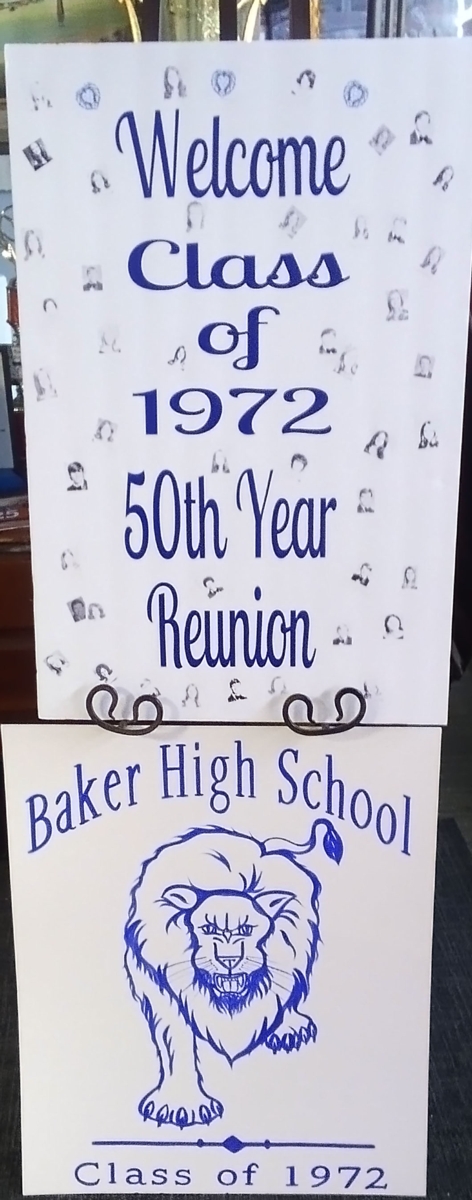 Welcome
Class
of
1972
50th Year
Reunion
Baker High School
Class of 1972